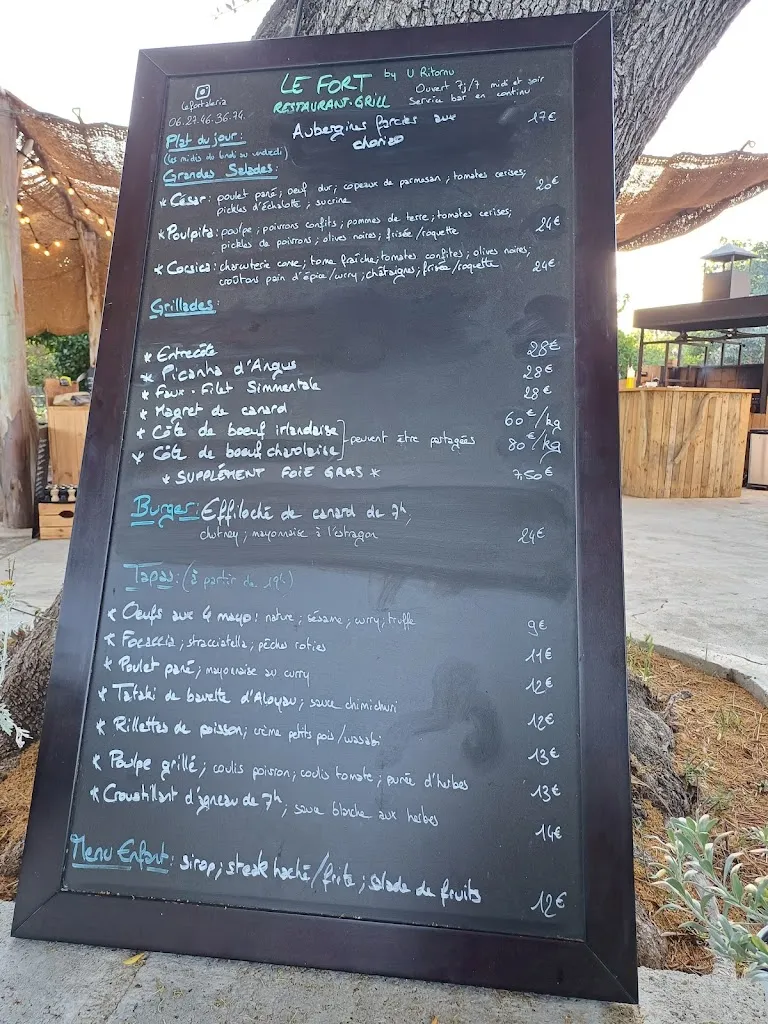 LE FORT by U Ritornu
RESTAURANT-GRILL
Ouvert 7j/7 midi et soir
Service bar en continu
Lefortaleria
06.27.46.36.74.
Plat du jour:
(les midis du lundi au vendredi)
Aubergines farcies aux chorizo 17€
Grandes Salades:
* César: poulet pané; oeuf dur; copeaux de parmesan; tomates cerises; 20€
pickles d'échalotte; sucrine
* Poulpita: poulpe; poivrons confits; pommes de terre; tomates cerises; 24€
pickles de poivrons; olives noires; frisée/roquette
* Corsica: charcuterie corse; tome fraîche; tomates confites; olives noires; 24€
croûtons pain d'épice/curry; châtaignes; frisée/roquette
Grillades:
* Entrecôte 28€
* Picanha d'Angus 28€
* Faux-Filet Simmentale 28€
* Magret de canard
* Côte de boeuf irlandaise 60€/kg
peuvent être partagées
* Côte de boeuf charolaise 80€/kg
* SUPPLÉMENT FOIE GRAS * 7,50€
Burger: Effiloché de canard de 7h,
chutney; mayonnaise à l'estragon 24€
Tapas: (à partir de 19h)
* Oeufs aux 4 mayo: nature; sésame; curry; truffe 9€
* Focaccia; stracciatella; pêches roties 11€
* Poulet pané; mayonnaise au curry 12€
* Tataki de bavette d'Aloyau; sauce chimichuri 12€
* Rillettes de poisson; crème petits pois/wasabi 13€
* Poulpe grillé; coulis poivron; coulis tomate; purée d'herbes 13€
* Croustillant d'agneau de 7h; sauce blanche aux herbes 14€
Menu Enfant: sirop; steak haché/frite; salade de fruits 12€